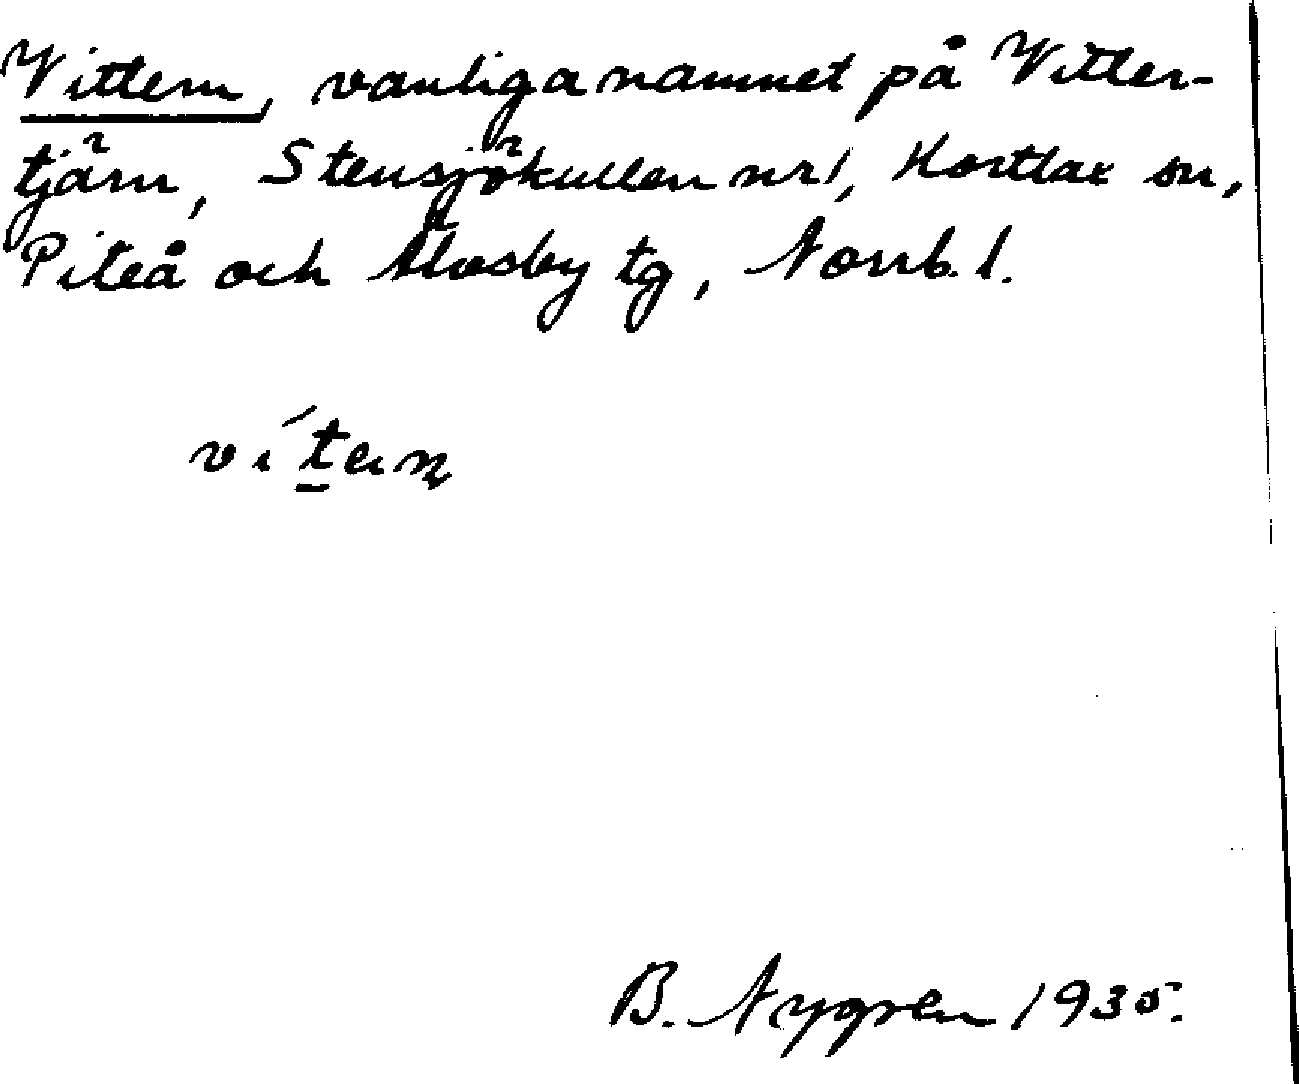 Vittern, vanliga namnet på Vitter-
tjärn, Stensjökullen nr 1, Hortlax sn,
Piteå och Älvsby tg, Norrb. l.
B. Nygren 1935.